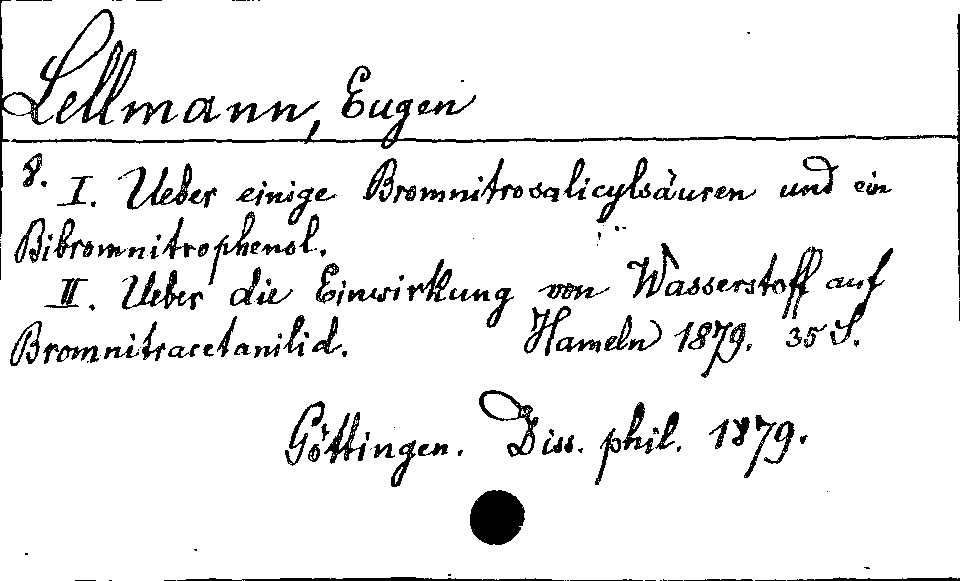 Lellmann, Eugen
8. I. Ueber einige Bromnitrosalicylsäuren und ein
Bibromnitrophenol.
II. Ueber die Einwirkung von Wasserstoff auf
Bromnitracetanilid. Hameln 1879. 35 S.
Göttingen. Diss. phil. 1879.